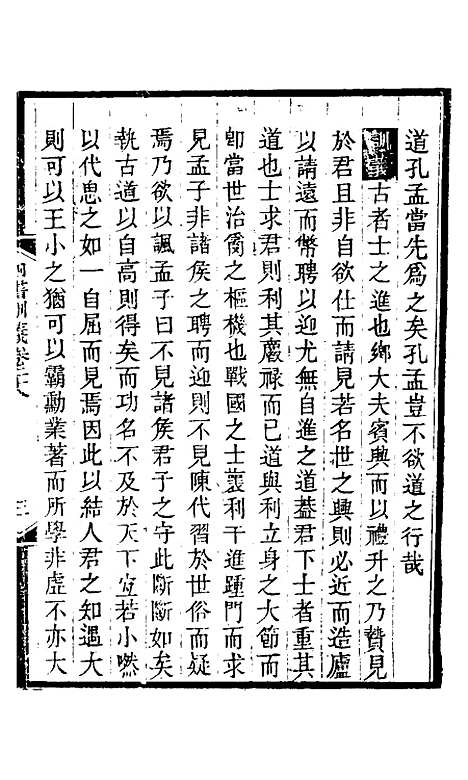 道孔孟當先爲之矣孔孟豈不欲道之行哉
訓義古者士之進也鄉大夫賓興而以禮升之乃贄見
於君且非自欲仕而請見若名世之興則必近而造廬
以請遠而幣聘以迎尤無自進之道葢君下士者重其
道也士求君則利其爵祿而已道與利立身之大節而
卽當世治亂之樞機也戰國之士襲利干進踵門而求
見孟子非諸矦之聘而迎則不見陳代習於世俗而疑
焉乃欲以諷孟子曰不見諸矦君子之守此斷斷如矣
執古道以自高則得矣而功名不及於天下宜若小㗳
以代思之如一自屈而見焉因此以結人君之知遇大
則可以王小之猶可以霸勳業著而所學非虛不亦大
四書訓義卷二十八
三